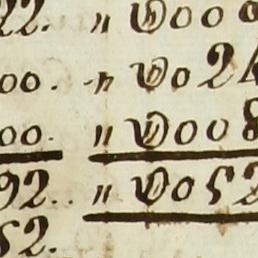 22. " D000
00. " D024
00. " D008
92. " D052
52.